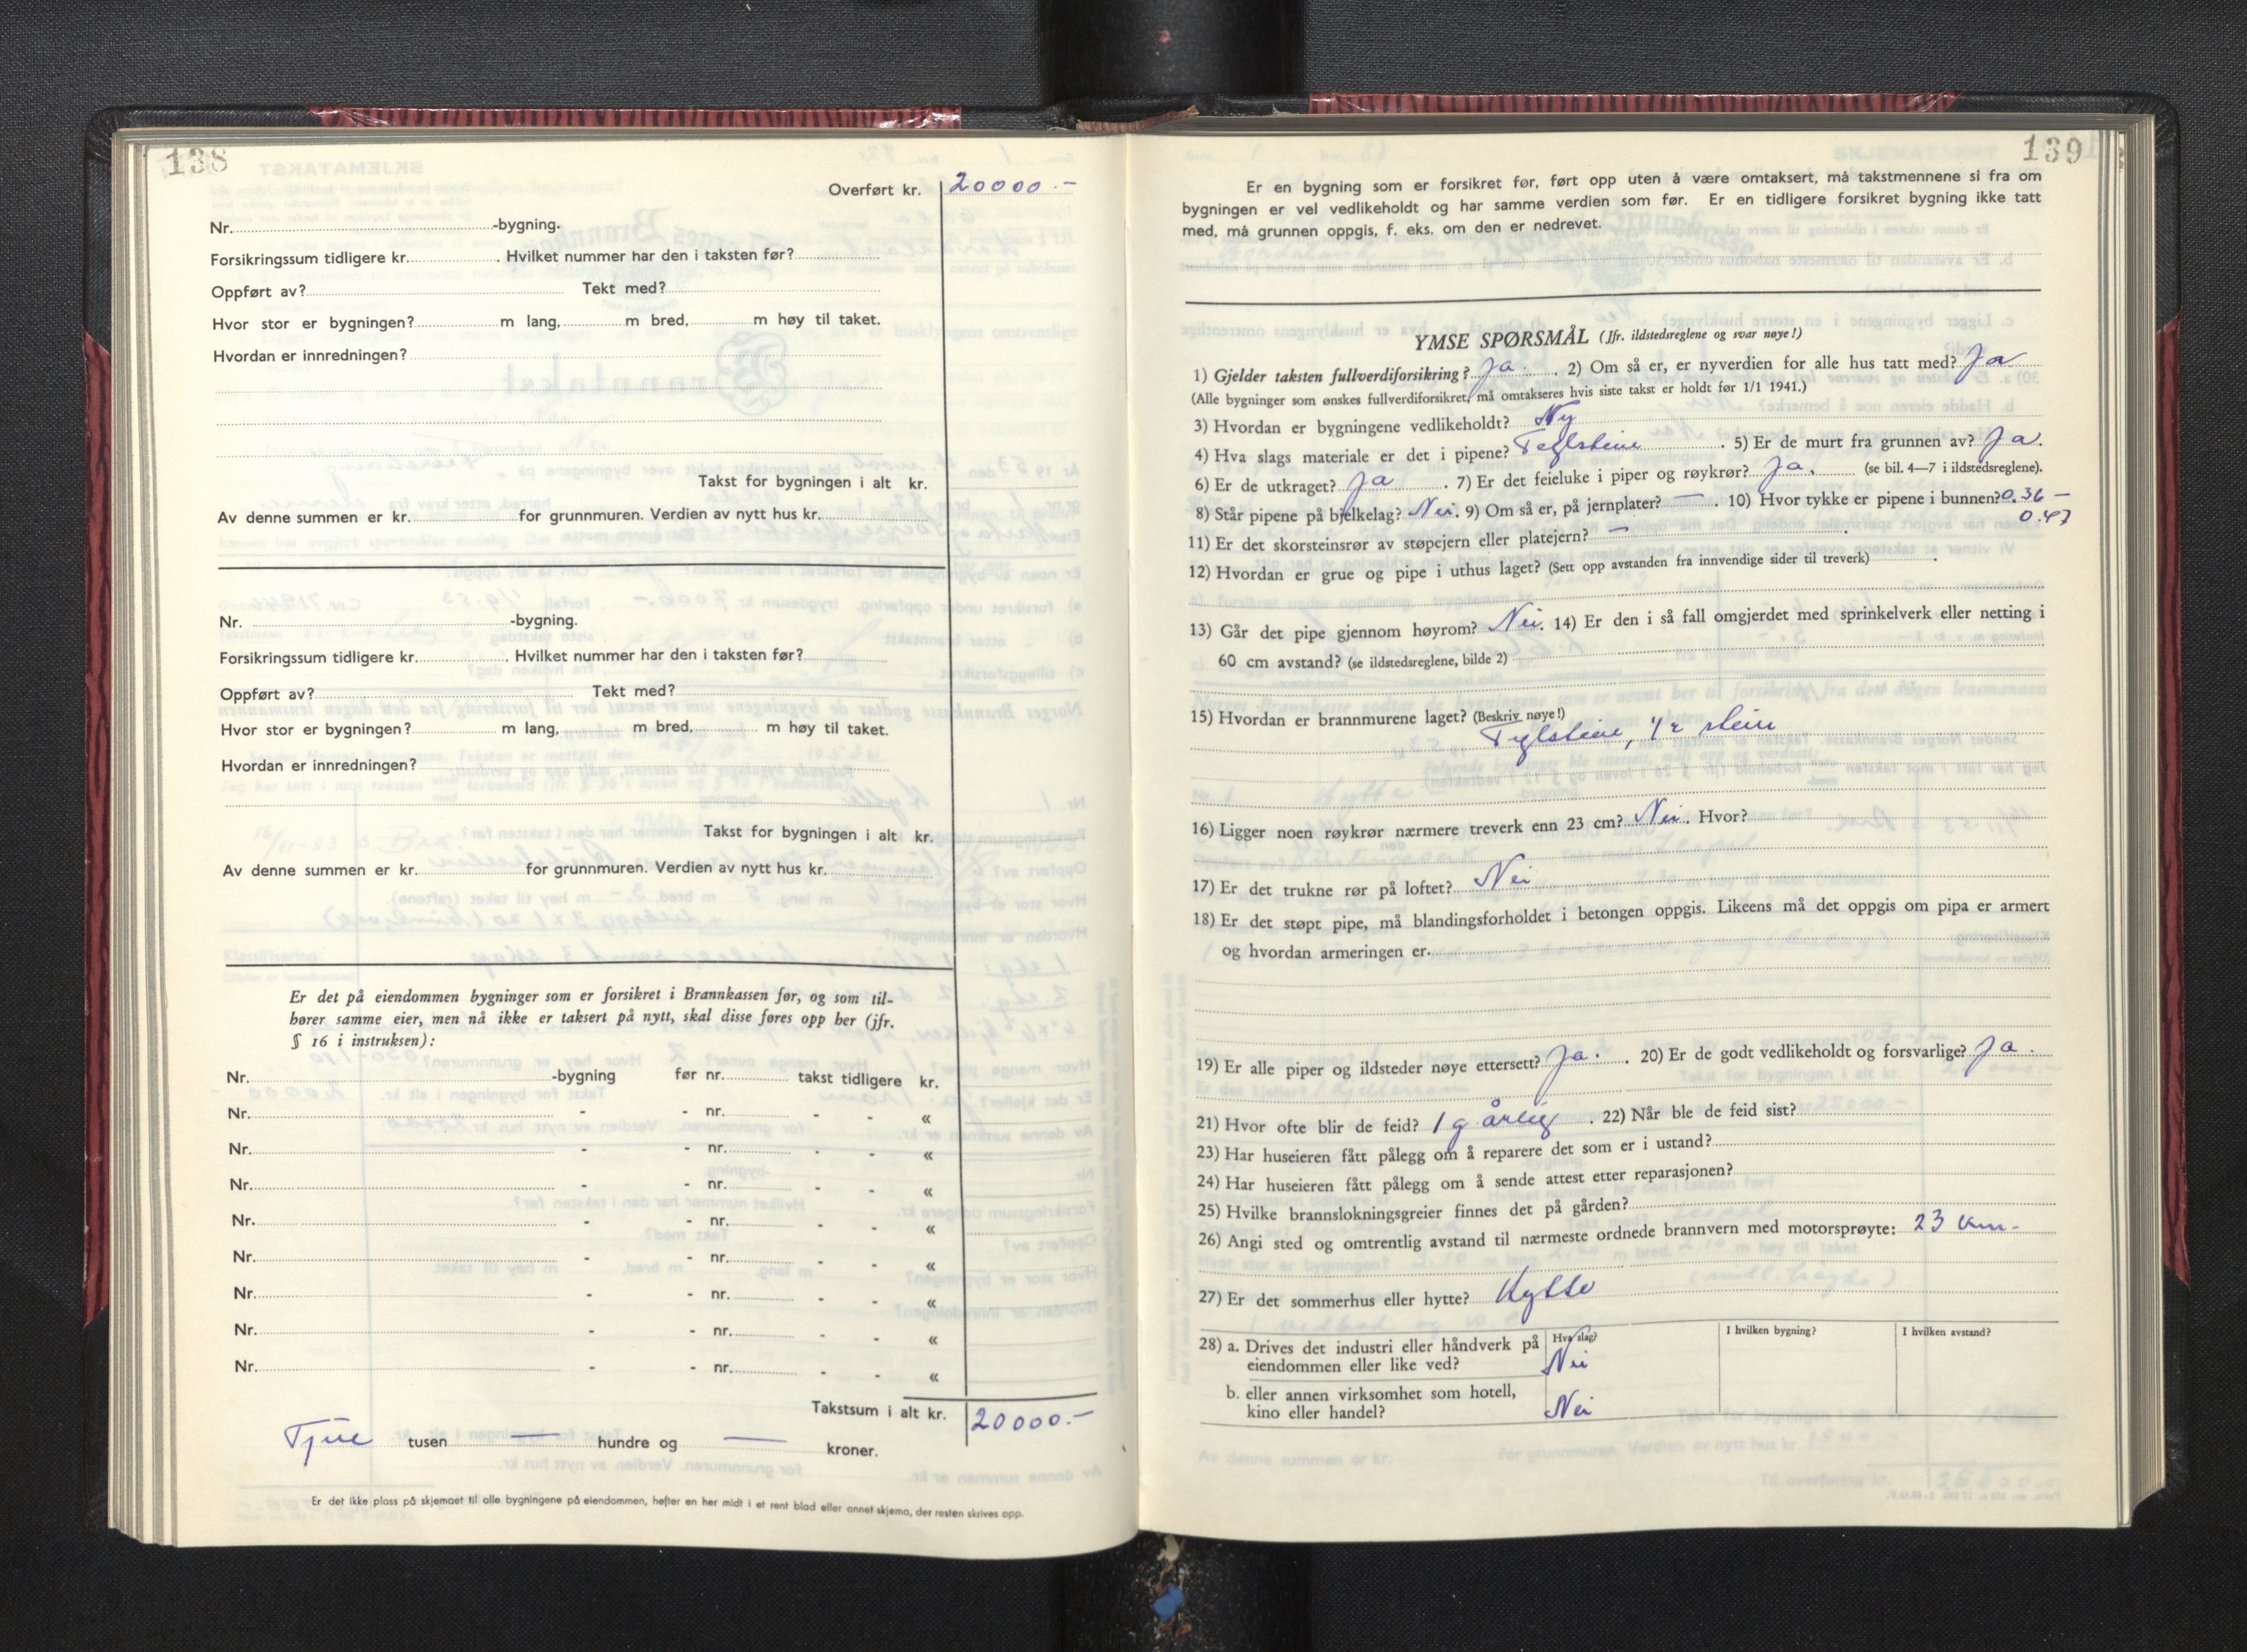 138
Overført kr. 20000.-
Nr. -bygning.
Forsikringssum tidligere kr. . Hvilket nummer har den i taksten før?
Oppført av? Tekt med?
Hvor stor er bygningen? m lang, m bred, m høy til taket.
Hvordan er innredningen?
Takst for bygningen i alt kr.
Av denne summen er kr. for grunnmuren. Verdien av nytt hus kr.
Nr. -bygning.
Forsikringssum tidligere kr. . Hvilket nummer har den i taksten før?
Oppført av? Tekt med?
Hvor stor er bygningen? m lang, m bred, m høy til taket.
Hvordan er innredningen?
Takst for bygningen i alt kr.
Av denne summen er kr. for grunnmuren. Verdien av nytt hus kr.
Er det på eiendommen bygninger som er forsikret i Brannkassen før, og som til-
hører samme eier, men nå ikke er taksert på nytt, skal disse føres opp her (jfr.
§ 16 i instruksen):
Nr. -bygning før nr. takst tidligere kr.
Nr. - - nr. - - «
Nr. - - nr. - - «
Nr. - - nr. - - «
Nr. - - nr. - - «
Nr. - - nr. - - «
Nr. - - nr. - - «
Nr. - - nr. - - «
Nr. - - nr. - - «
Takstsum i alt kr. 20000.-
Tjue tusen — hundre og — kroner.
Er det ikke plass på skjemaet til alle bygningene på eiendommen, hefter en her midt i et rent blad eller annet skjema, der resten skrives opp.
139
Er en bygning som er forsikret før, ført opp uten å være omtaksert, må takstmennene si fra om
bygningen er vel vedlikeholdt og har samme verdien som før. Er en tidligere forsikret bygning ikke tatt
med, må grunnen oppgis, f. eks. om den er nedrevet.
YMSE SPØRSMÅL (Jfr. ildstedsreglene og svar nøye!)
1) Gjelder taksten fullverdiforsikring? Ja. . 2) Om så er, er nyverdien for alle hus tatt med? Ja
(Alle bygninger som ønskes fullverdiforsikret, må omtakseres hvis siste takst er holdt før 1/1 1941.)
3) Hvordan er bygningene vedlikeholdt? Ny
4) Hva slags materiale er det i pipene? Teglstein . 5) Er de murt fra grunnen av? Ja.
6) Er de utkraget? Ja . 7) Er det feieluke i piper og røykrør? Ja. (se bil. 4—7 i ildstedsreglene).
8) Står pipene på bjelkelag? Nei. 9) Om så er, på jernplater? — . 10) Hvor tykke er pipene i bunnen? 0.36 -
0.47
11) Er det skorsteinsrør av støpejern eller platejern? — .
12) Hvordan er grue og pipe i uthus laget? (Sett opp avstanden fra innvendige sider til treverk) .
13) Går det pipe gjennom høyrom? Nei. 14) Er den i så fall omgjerdet med sprinkelverk eller netting i
60 cm avstand? (se ildstedsreglene, bilde 2)
15) Hvordan er brannmurene laget? (Beskriv nøye!)
Teglstein, 1/2 stein
16) Ligger noen røykrør nærmere treverk enn 23 cm? Nei. Hvor?
17) Er det trukne rør på loftet? Nei
18) Er det støpt pipe, må blandingsforholdet i betongen oppgis. Likeens må det oppgis om pipa er armert
og hvordan armeringen er.
19) Er alle piper og ildsteder nøye ettersett? Ja. . 20) Er de godt vedlikeholdt og forsvarlige? Ja.
21) Hvor ofte blir de feid? 1 g årlig . 22) Når ble de feid sist?
23) Har huseieren fått pålegg om å reparere det som er i ustand?
24) Har huseieren fått pålegg om å sende attest etter reparasjonen?
25) Hvilke brannslokningsgreier finnes det på gården?
26) Angi sted og omtrentlig avstand til nærmeste ordnede brannvern med motorsprøyte: 23 km-
27) Er det sommerhus eller hytte? Hytte
28) a. Drives det industri eller håndverk på Hva slag? I hvilken bygning? I hvilken avstand?
eiendommen eller like ved? Nei
b. eller annen virksomhet som hotell,
kino eller handel? Nei